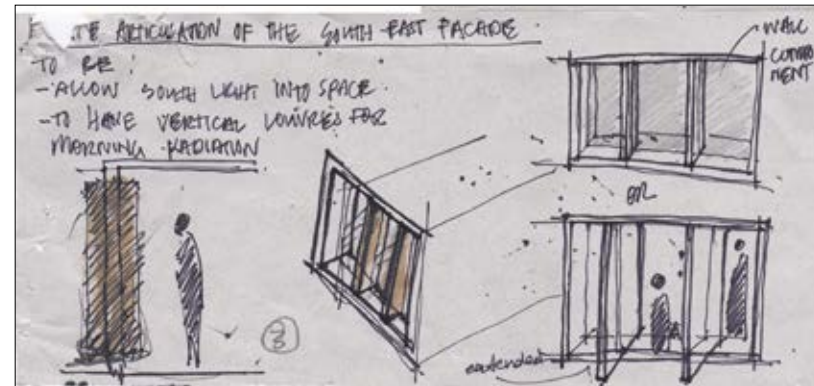 ARTICULATION OF THE SOUTH-EAST FACADE
TO BE:
- ALLOW SOUTH LIGHT INTO SPACE.
- TO HAVE VERTICAL LOUVRES FOR
MORNING RADIATION
WALL
OR
extended
3